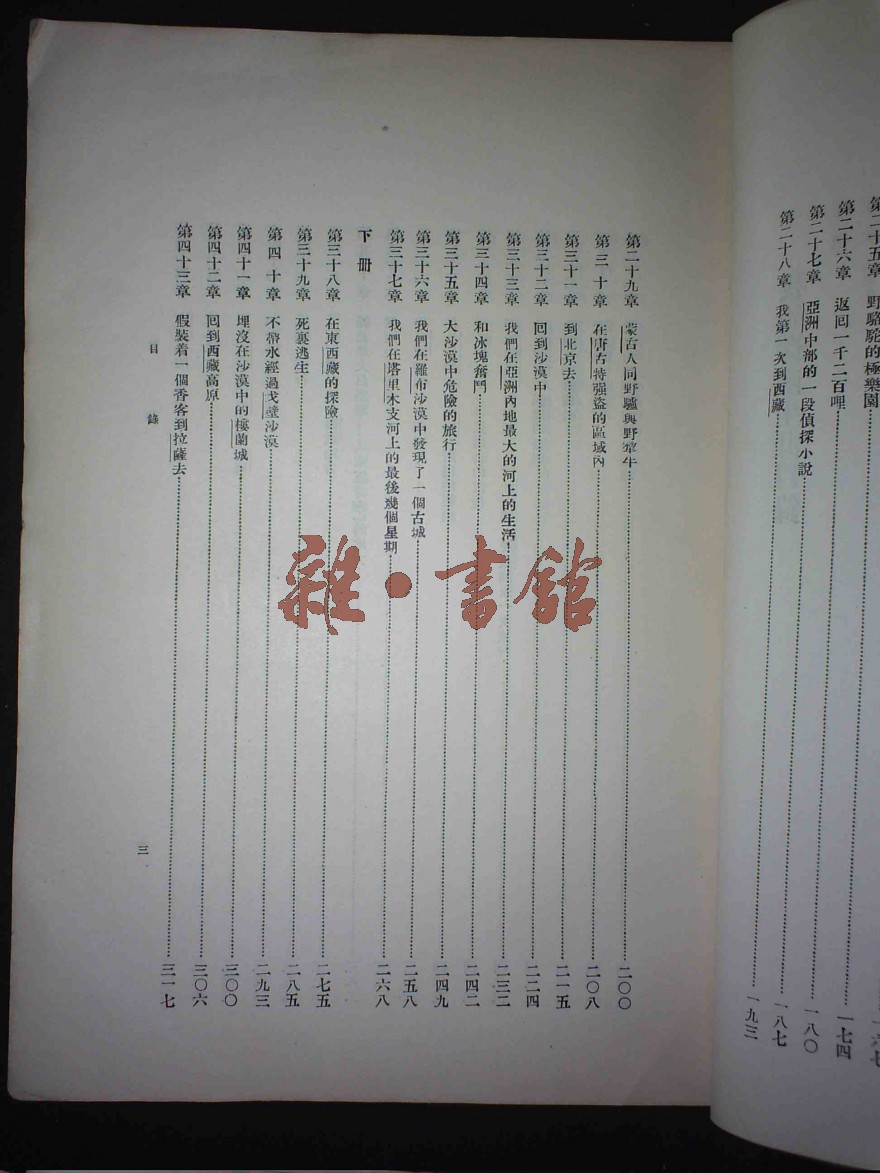 野駱駝的極樂園
第二十六章 返回一千二百哩 一七四
第二十七章 亞洲中部的一段偵探小說 一八〇
第二十八章 我第一次到西藏 一八七
一九三
第二十九章 蒙古人同野驢與野犛牛 二〇〇
第三十章 在唐古特强盜的區域內 二〇八
第三十一章 到北京去 二一五
第三十二章 回到沙漠中 二二四
第三十三章 我們在亞洲內地最大的河上的生活 二三二
第三十四章 和冰塊奮鬥 二四二
第三十五章 大沙漠中危險的旅行 二四九
第三十六章 我們在羅布沙漠中發現了一個古城 二五八
第三十七章 我們在塔里木支河上的最後幾個星期 二六八
下冊
第三十八章 在東西藏的探險 二七五
第三十九章 死裏逃生 二八五
第四十章 不帶水經過戈壁沙漠 二九三
第四十一章 埋沒在沙漠中的樓蘭城 三〇〇
第四十二章 回到西藏高原 三〇六
第四十三章 假裝着一個香客到拉薩去 三一七
目錄
三
雜·書館